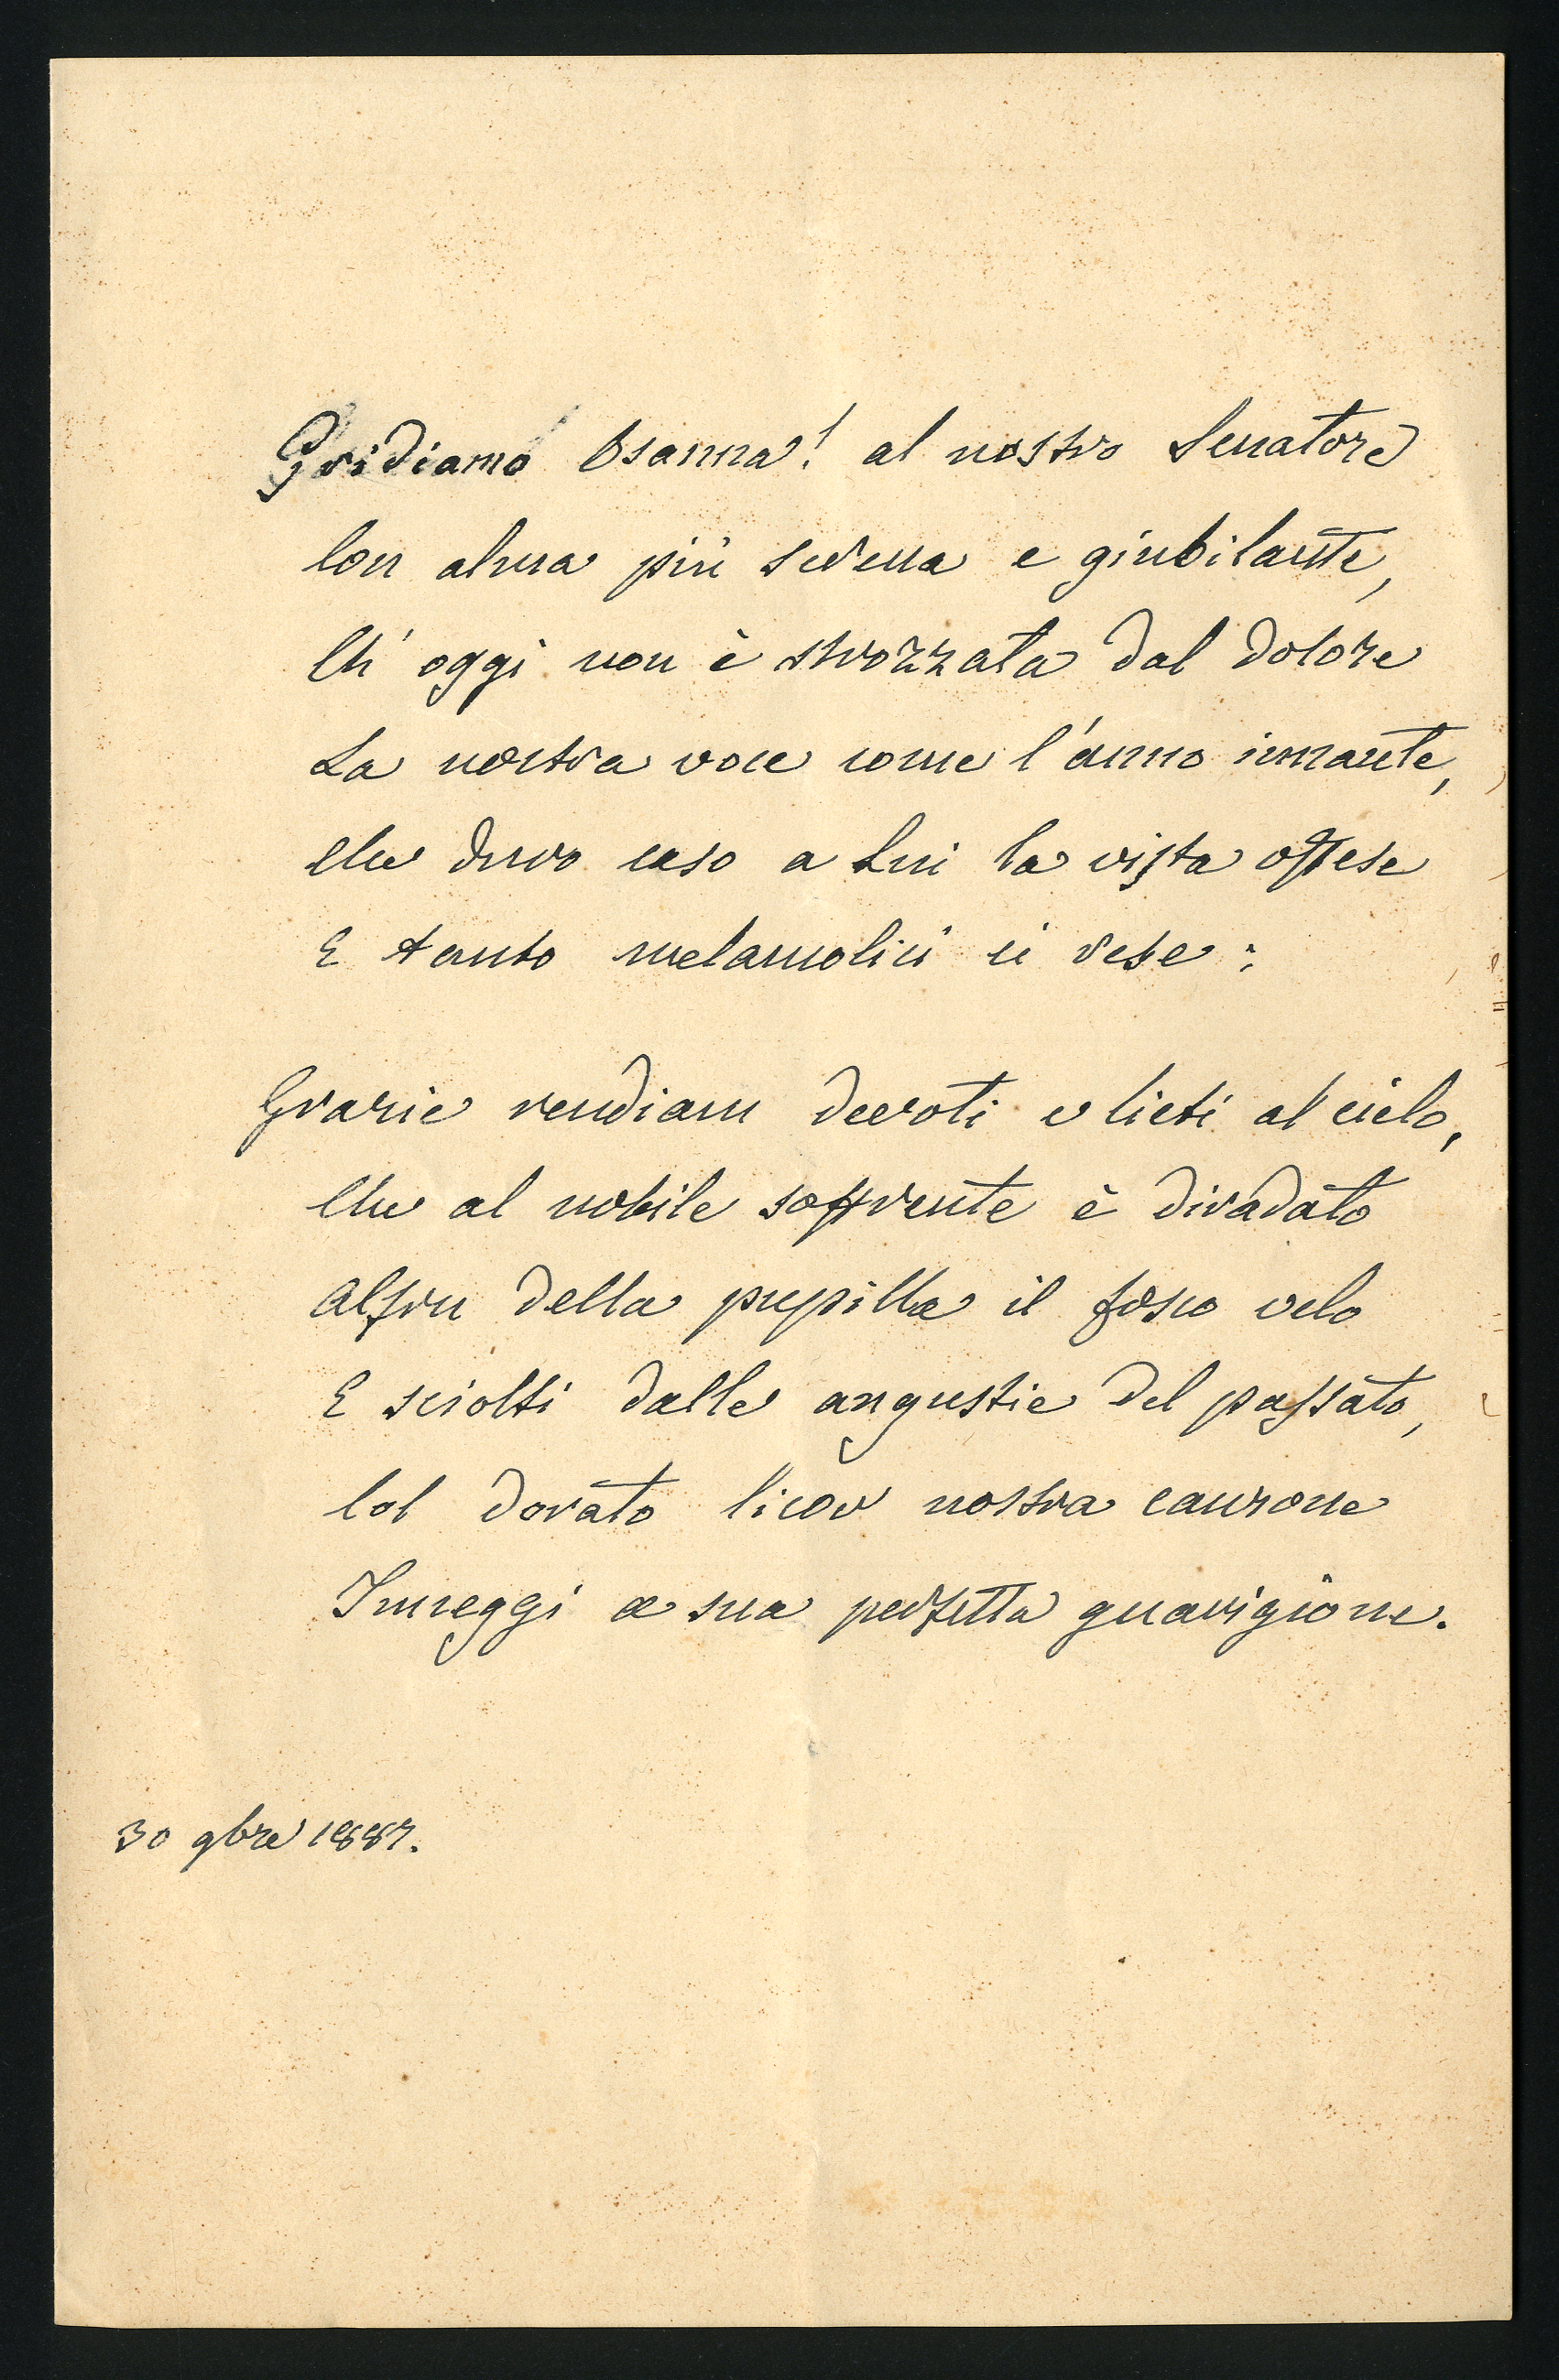 Gridiamo Osanna! al nostro Senatore
Con alma più serena e giubilante,
Ch' oggi non è strozzata dal dolore
La nostra voce come l'anno innante,
Che duro caso a Lui la vista offese
E tanto melanconici ci rese:
Grazie rendiam devoti e lieti al cielo,
Che al nobile soffrente è diradato
Alfin della pupilla il fosco velo
E sciolti dalle angustie del passato,
Col dorato licor nostra canzone
Inneggi a sua perfetta guarigione.
30 9bre 1887.